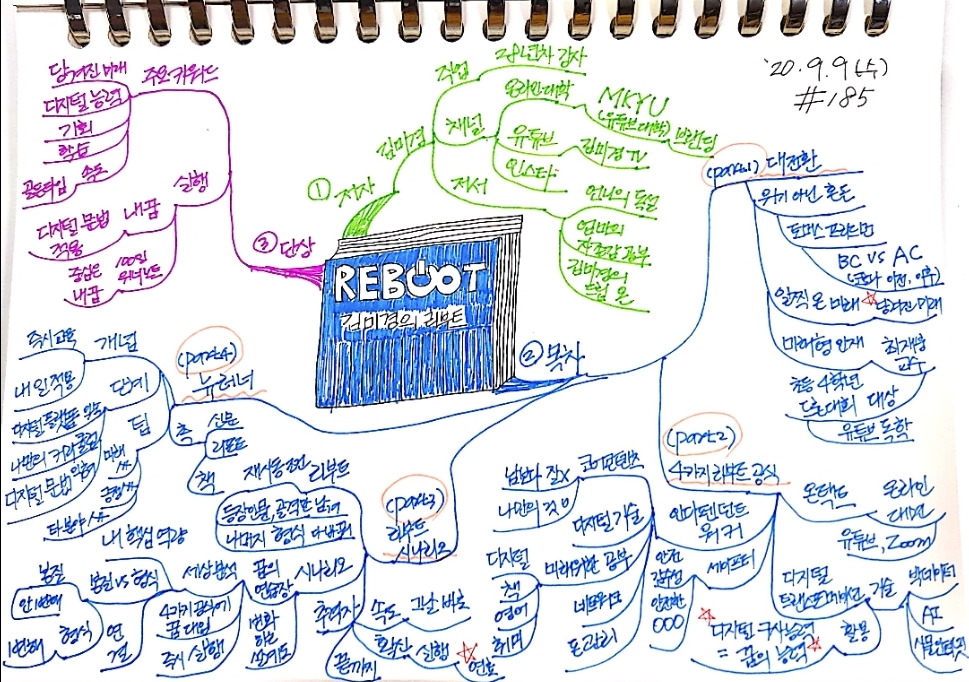 '20. 9. 9 (수)
#185
REBOOT
김미경의 리부트
① 저자
김미경
직업
28년차 강사
채널
온라인대학
MKYU
(유튜브대학) 브랜딩
유튜브
김미경 TV
인스타
저서
언니의 독설
엄마의
자존감 공부
김미경의
드림 온
② 목차
(part1) 대전환
위기 아닌 혼돈
토머스 프리드먼
BC VS AC
(코로나 이전, 이후)
일찍 온 미래 ☆ 당겨진 미래
미래형 인재
최재붕
교수
초등 4학년
토론대회 대상
유튜브 독학
(part2)
4가지 리부트 공식
온택트
온라인
대면
유튜브, Zoom
디지털
트랜스포메이션
기술
빅데이터
AI
사물인터넷
활용
☆ 디지털 구사능력
= 꿈의 능력 ☆
인디펜던트
워커
코어콘텐츠
남보다 잘X
나만의 것 O
디지털 기술
미래위한 공부
디지털
책
영어
취미
네트워크
돈관리
세이프티
안전
감수성
안전한
OOO
(part3)
리부트
시나리오
리부트
재시동 조건
등장인물, 공격한 남여
나머지 형식 다 바꿔
시나리오
꿈의
연습장
변화
하는
세상분석
4가지 공식에
꿈 대입
즉시 실행
내 핵심 역량
본질 VS 형식
본질
안변해
형식
변해
연결
추격자
속도
그날 바로
확산
실행
☆ 연결
끝까지
(part4)
뉴러너
개념
즉시교육
내 일 적용
단계
디지털 플랫폼 입승
나만의 커리큘럼
디지털 문법 익히기
팁
미래
타분야
촉
신문
리포트
책
③ 단상
주요키워드
당겨진 미래
디지털 능력
기회
학습
속도
골든타임
실행
내꿈
디지털 문법
적용
100일
위너노트
내꿈